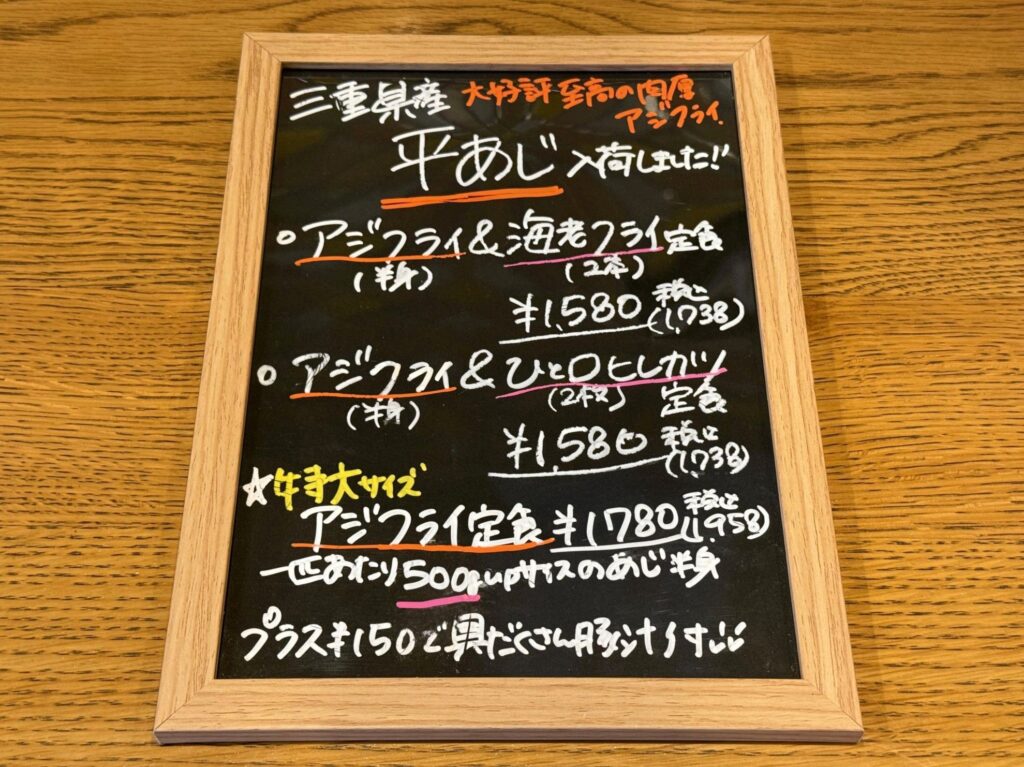 三重県産 大好評 至高の肉厚
アジフライ
平あじ 入荷しました!!
○アジフライ&海老フライ定食
(半身) (2本)
¥1,580 税込(1,738)
○アジフライ&ひと口ヒレカツ
(半身) (2枚) 定食
¥1,580 税込(1,738)
☆特大サイズ
アジフライ定食 ¥1780 税込(1,958)
一匹あたり500gupサイズのあじ半身
プラス¥150で具だくさん豚汁